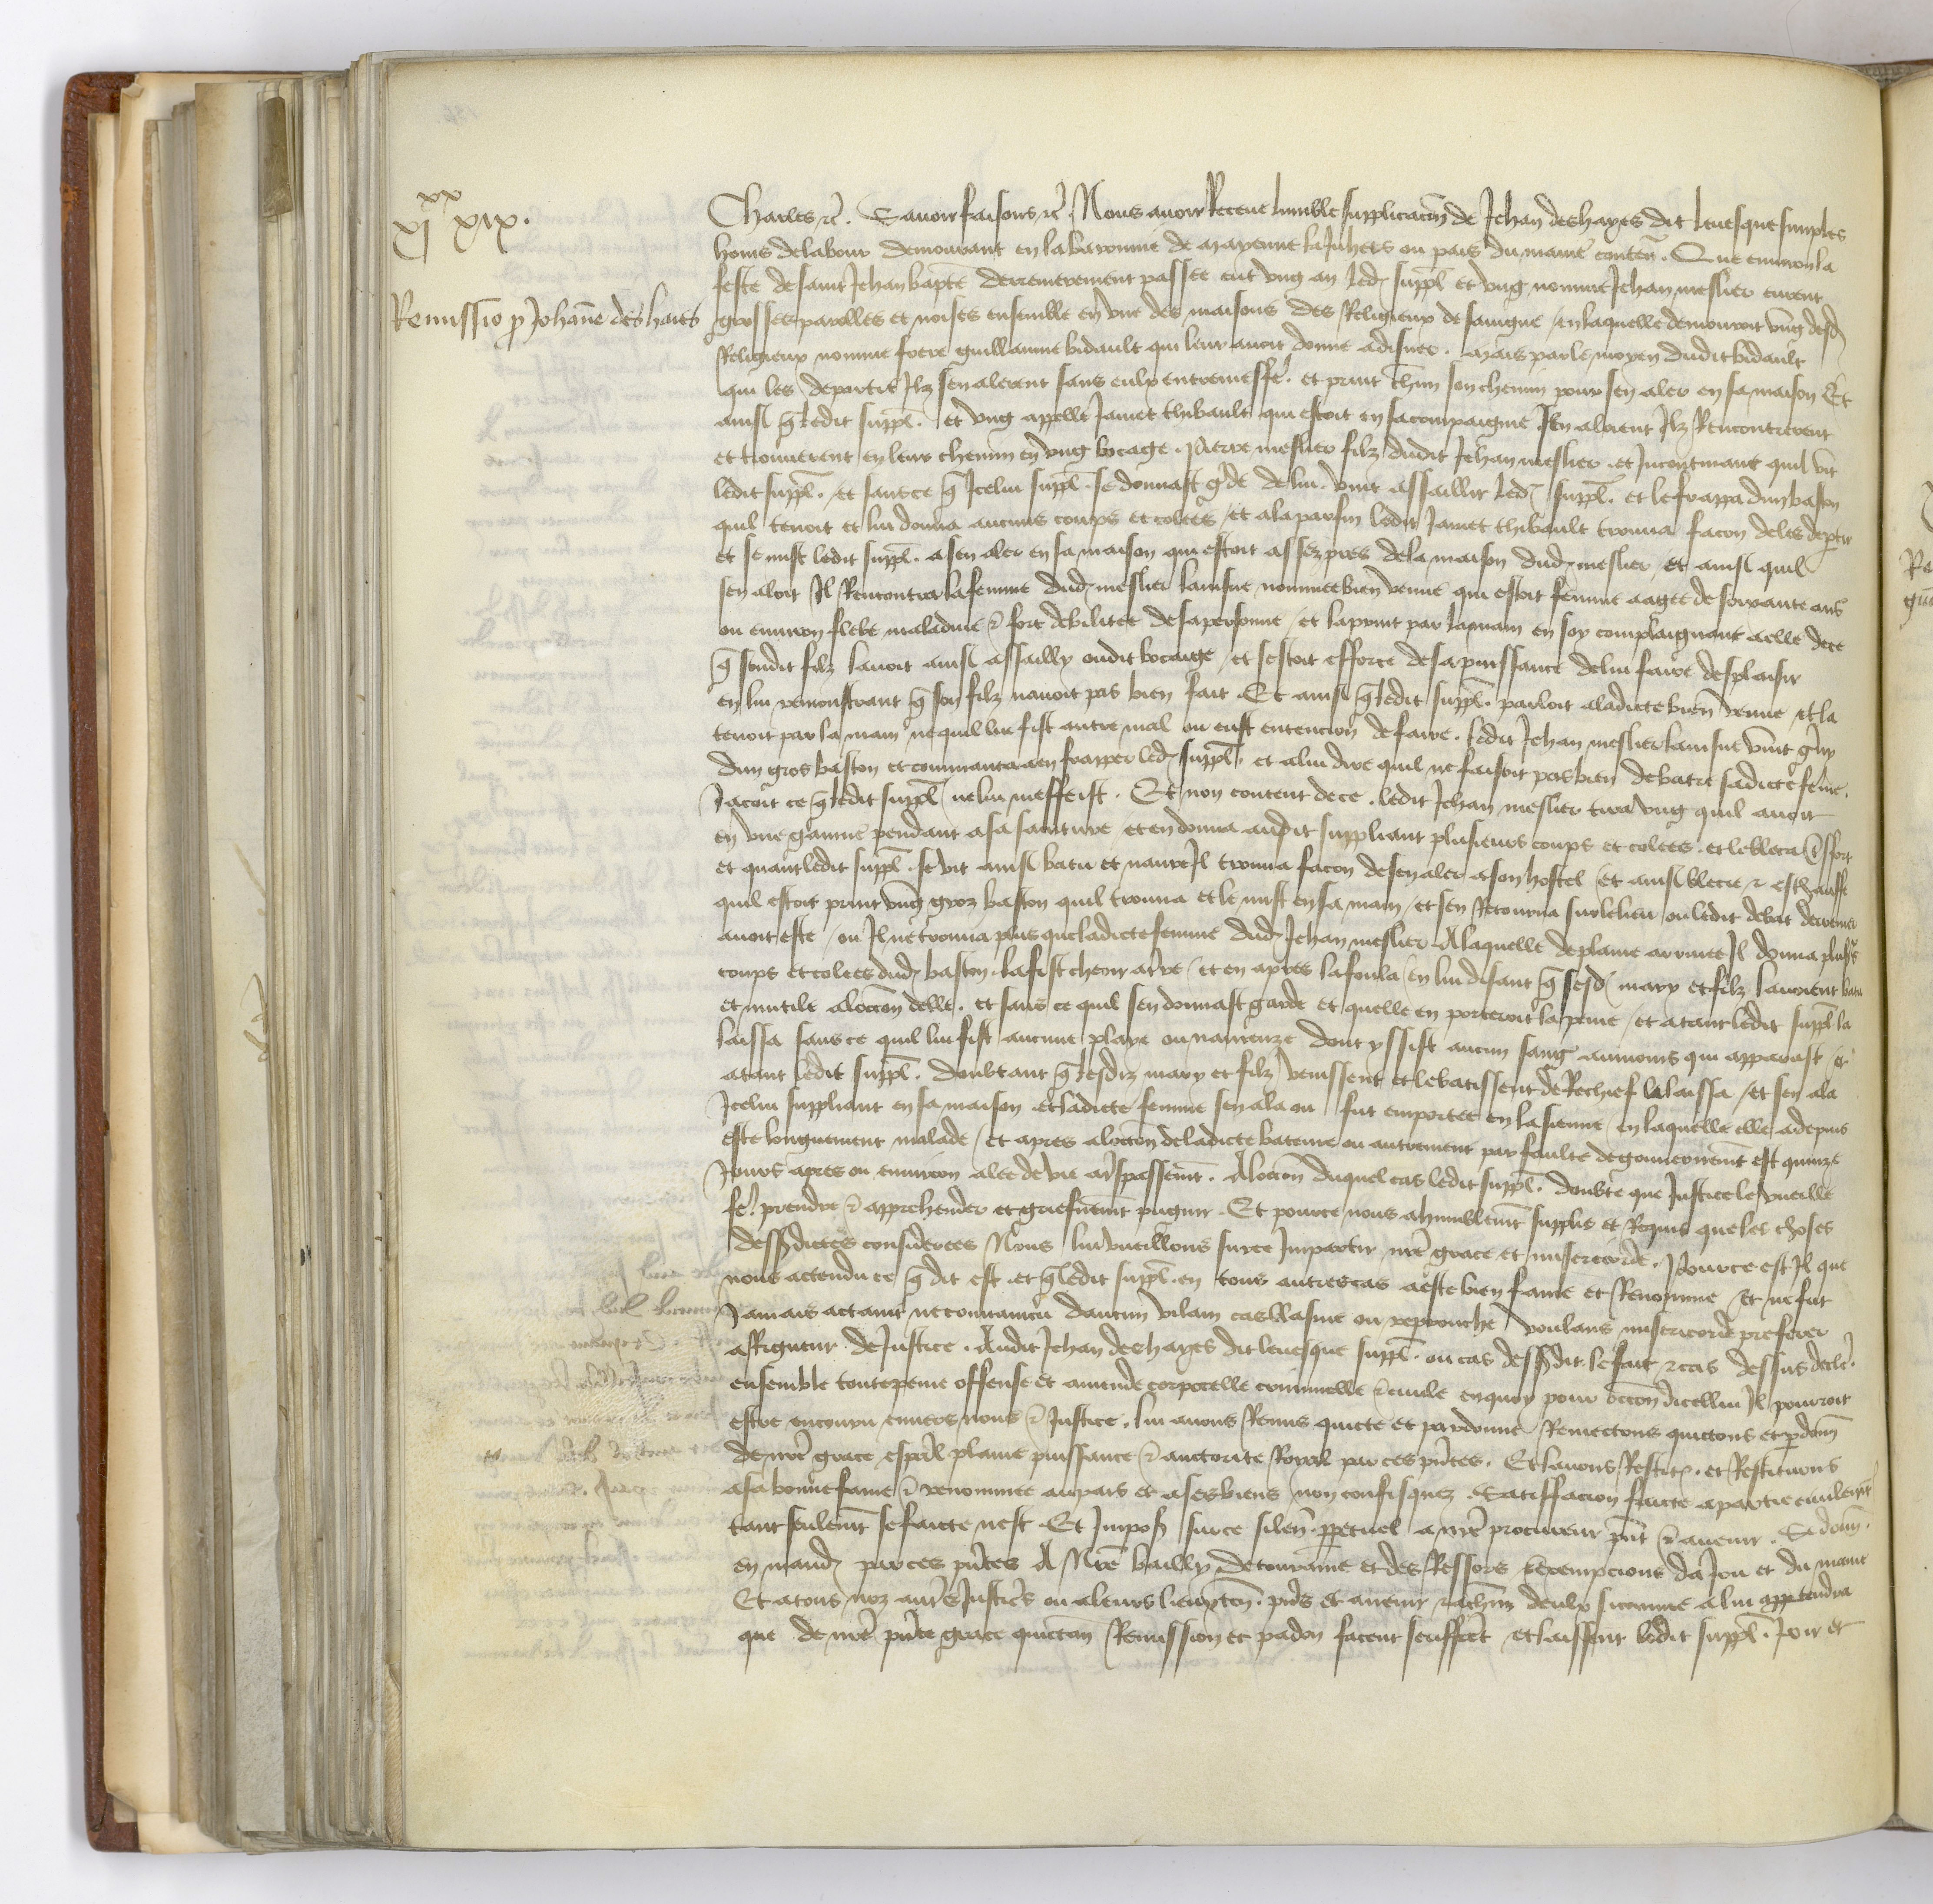 xx
xj xix.
Remissio p Johane des haies
Charles etc. Savoir faisons etc. Nous avoir Receue lumble supplicacon de Jehan deshayes dit levesque simples
homs delabour demourant en la baronnie de mayenne la Juhes ou pais du maine conten. Que environ la
feste de saint Jehan bapte derrenierement passee eut ung an led suppl et ung nomme Jehan meslier eurent
grosses parolles et noises ensemble en une des maisons des Religieux de savigne en laquelle demouroit ung desd
Religieux nomme frere guillaume bidault qui leur avoit donne a disner. Mais par le moyen dudit bidault
qui les departit Ilz sen alerent sans eulx entremeffe. et print chun son chemin pour sen aler en sa maison Et
ainsi q ledit suppl. et ung appelle Jamet thibault qui estoit en sa compaignie sen aloient Ilz Rencontrerent
et trouverent en leur chemin en ung bocage. Pierre meslier filz dudit Jehan meslier. et Incontinant quil vit
ledit suppl. et sans ce q Icelui suppl. se donnast gde de lui. vint assaillir led suppl. et le frappa dun baston
quil tenoit et lui donna aucuns coups et colees et ala parfin ledit Jamet thibault trouva facon deles deptir
et se mist ledit suppl. a sen aler en sa maison qui estoit assez pres dela maison dud meslier Et ainsi quil
sen aloit Il Rencontra la femme dud meslier laisne nommee bien venue qui estoit femme aagee de soixante ans
ou environ fleble maladive et fort debilitee de sa personne et la print par la main en soy complaignant a elle de ce
q sondit filz lavoit ainsi assailly oudit bocaige et sestoit efforce de sa puissance de lui faire desplaisir
en lui remonstrant q son filz navoit pas bien fait. Et ainsi q ledit suppl. parloit a ladicte bien venue et la
tenoit par la main ne quil lui fist autre mal ou eust entencion de faire. ledit Jehan meslier laisne vint gny
dun gros baston et commanca a en frapper led suppl. et a lui dire quil ne faisoit pas bien de batre sadicte feme.
Jacoit ce q ledit suppl ne lui meffeist. Et non content de ce. ledit Jehan meslier tira ung quil avoit
en une gainne pendant a sa sainture et en donna audit suppliant plusieurs coups et colees. et le bleca si fort
et quant ledit suppl. se vit ainsi batu et navre Il trouva facon de sen aler a son hostel Et ainsi blecie et eschauffe
quil estoit print ung groz baston quil trouva et le mist en sa main et sen Retourna sur le lieu ou ledit debat derrenier
avoit este ou Il ne trouva plus que ladicte femme dud Jehan meslier. A laquelle de plaine arrivee Il donna plus
coups et colees dud baston. la fist cheoir a tre et en apres la foula en lui disant q sesd mary et filz lavoient batu
et mutile a loccon delle. et sans ce quil sen donnast garde et quelle en porteroit la peine et a tant ledit suppl la
laissa sans ce quil lui fist aucune playe ou navreure dont yssist aucun sang aumoins qui apparust et
a tant ledit suppl. doubtant q lesdiz mary et filz venissent et le batissent de Rechief la laissa et sen ala
Icelui suppliant en sa maison et ladicte femme sen ala ou fut emportee en la sienne en laquelle elle a depuis
este longuement malade et apres a loccon de ladicte bateure ou autrement par faulte de gouvernemt est quinze
Jours apres ou environ alee de vie a tspassement. A loccon duquel cas ledit suppl. doubte que Justice le vueille
fe prendre et apprehender et griefvemt pugnir. Et pource nous a humblemt supplie et Requis que les choses
dessdictes considerees Nous lui vueillons surce Impartir nre grace et misericorde. Pource est Il que
nous actendu ce q dit est et q ledit suppl. en tous autres cas a este bien fame et Renomme Et ne fut
Jamais actaint ne convaincu daucun vilain cas blasme ou reprouche voulans misericorde preferer
a Rigueur de Justice. Audit Jehan deshayes dit levesque suppl. ou cas dessdit le fait et cas dessus decle.
ensemble toute peine offense et amende corporelle criminelle et civile en quoy pour occon dicellui Il pourroit
estre encouru envers nous et Justice. lui avons Remis quicte et pardonne Remectons quictons et pdonn
de nre grace especl plaine puissance et auctorite Royal par ces pntes. Et lavons Restitue. et Restituons
a sa bonne fame et renommee au pais et a ses biens non confisquez Satisfacion faicte a partie civilemt
tant seulemt se faicte nest. Et Imposons surce silen. ppetuel a nre procureur pnt et avenir. Si donn.
en mand par ces pntes A Nre bailly de touraine et des Ressors et exempcions daIou et du maine
Et a tous noz autres Justiciers ou a leurs lieuxten. pns et avenir et a chun deulx si comme a lui appartendra
que de nre pnte grace quictan Remission et padon facent seuffrent et laissent ledit suppl. Joir et